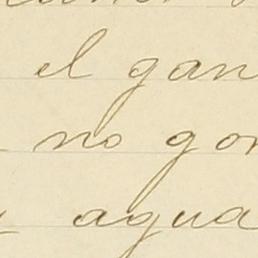 el gan
no gor
agua